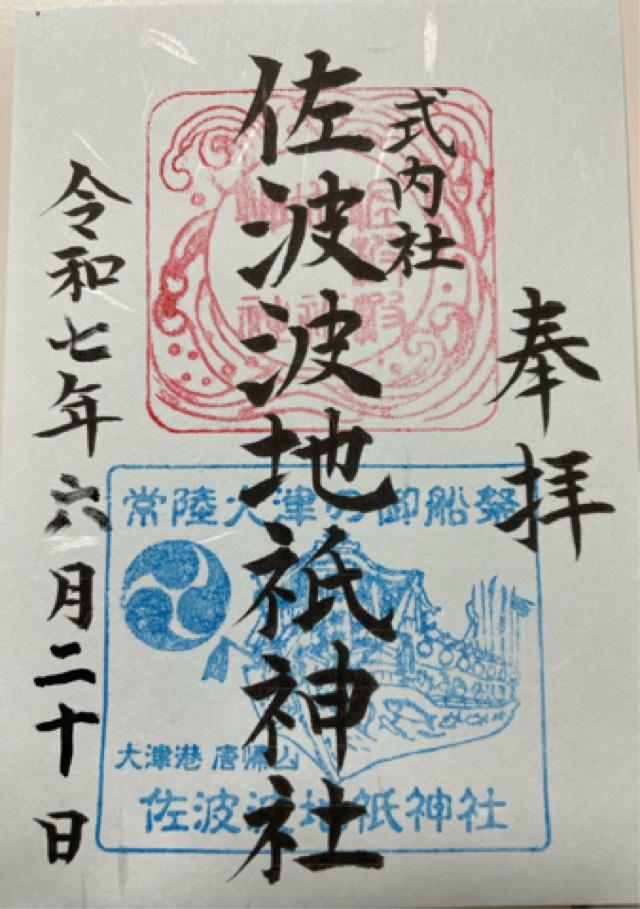 奉拝
式内社
佐波波地祇神社
令和七年六月二十日
常陸大津の御船祭
大津港 唐帰山
佐波波地祇神社